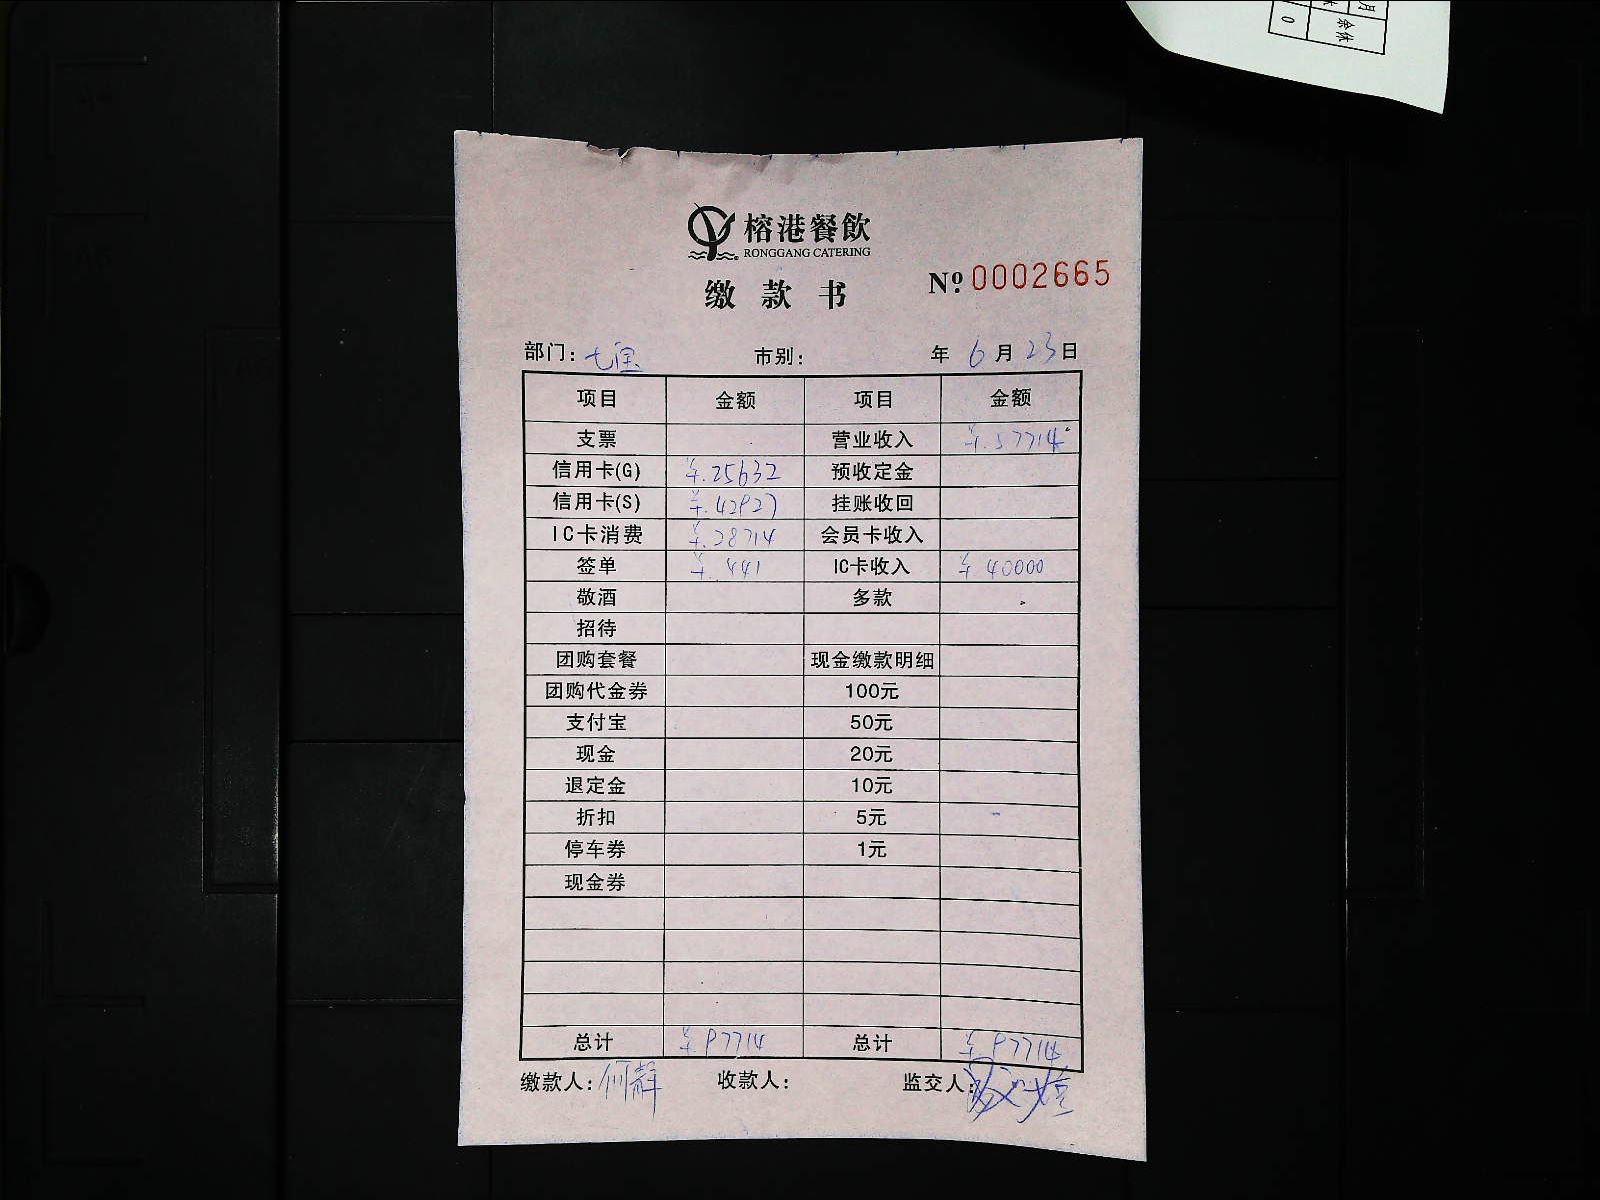 月
余休
0
榕港餐飲
RONGGANG CATERING
缴款书
№0002665
部门:七宝 市别: 年6月23日
项目 金额 项目 金额
支票 营业收入 ¥.57714
信用卡(G) ¥.25632 预收定金
信用卡(S) ¥.42927 挂账收回
IC卡消费 ¥.28714 会员卡收入
签单 ¥.441 IC卡收入 ¥40000
敬酒 多款
招待
团购套餐 现金缴款明细
团购代金券 100元
支付宝 50元
现金 20元
退定金 10元
折扣 5元
停车券 1元
现金券
总计 ¥.97714 总计 ¥.97714
缴款人: 收款人: 监交人: